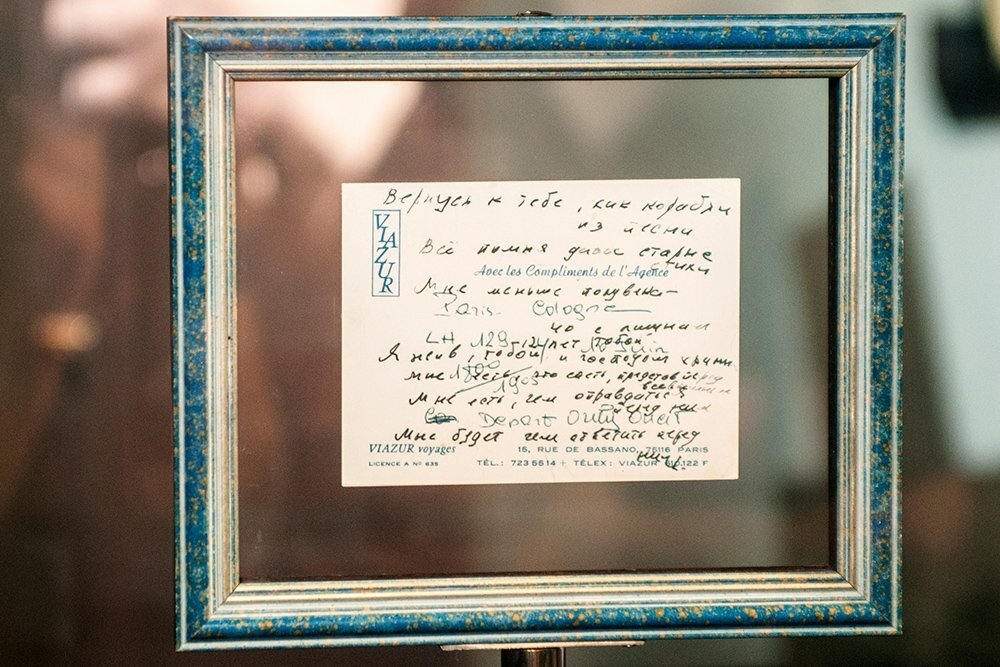 VIAZUR
Вернусь к тебе, как корабли
из песни
Всё помня даже старые
стихи
Avec les Compliments de l'Agence
Мне меньше полувека –
Paris Cologne
но с лишним
LH 129 - 12 лет тобой
10 Juin
Я жив, тобой и господом храним
1800
мне есть что спеть, представ перед
всевышним
1905
Мне есть, чем оправдаться
перед ним
Depart Orly Ouest
Мне будет чем ответить перед
ним!
VIAZUR voyages
15, RUE DE BASSANO, 75116 PARIS
LICENCE A Nº 635
TÉL.: 723 55 14 + TÉLEX: VIAZUR 610.122 F